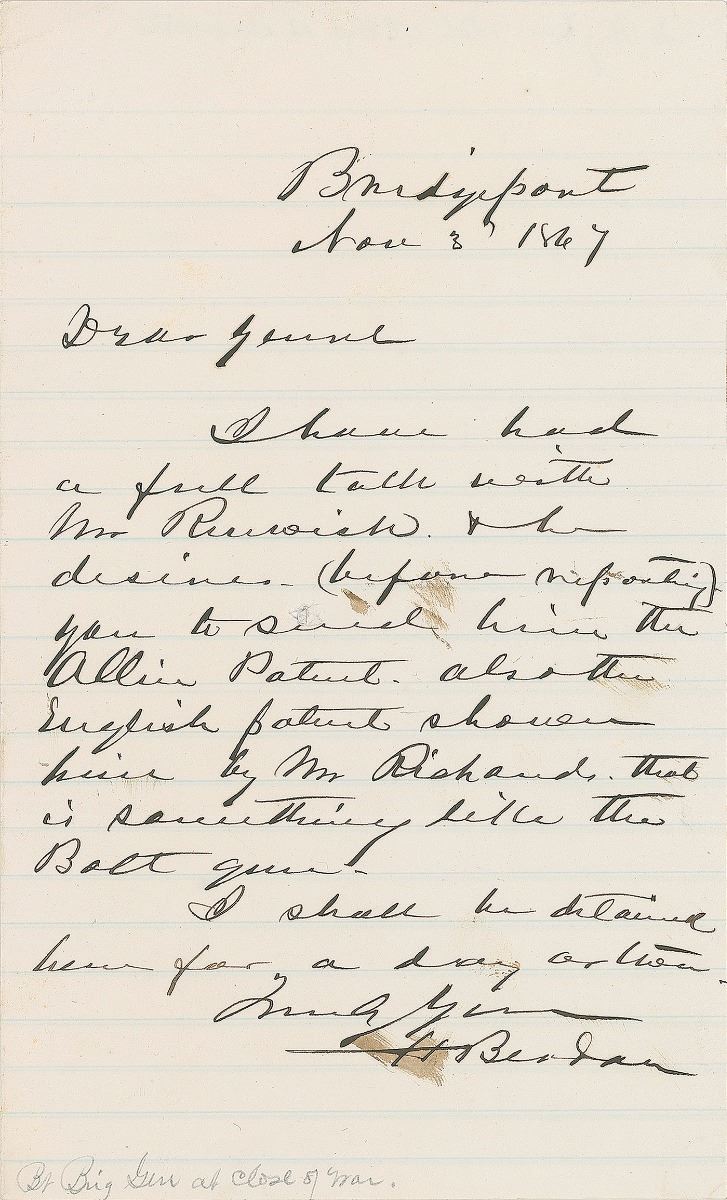 Bridgeport
Nov 3d 1867
Dear Genrl
I have had
a full talk with
Mr Renwick. & he
desires - (before reporting)
you to send him the
Allin Patent - also the
English patent shown
him by Mr Richards. that
is something like the
Bolt gun -
I shall be detained
here for a day or two -
Truly Yours
H Berdan
Bt Brig Gen at close of war.